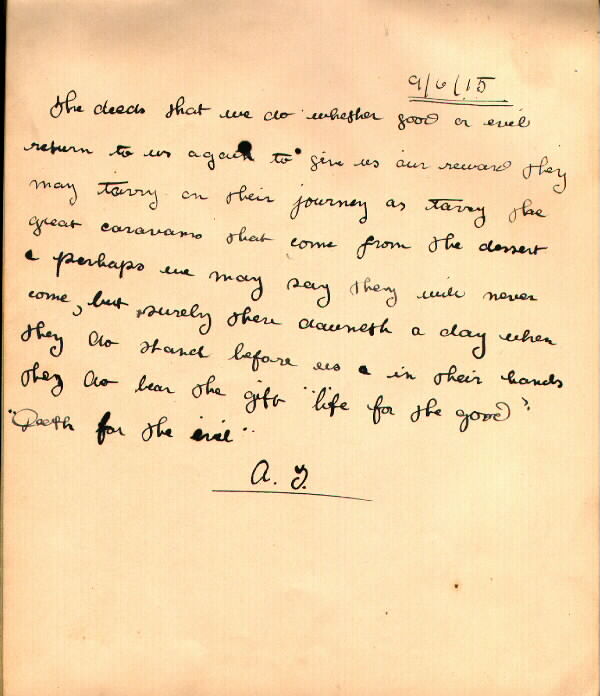 9/6/15
The deeds that we do whether good or evil
return to us again to give us our reward they
may tarry on their journey as tarry the
great caravans that come from the dessert
& perhaps we may say they will never
come, but surely there dawneth a day when
they do stand before us & in their hands
they do bear the gift "life for the good"
"Death for the evil"
A. J.